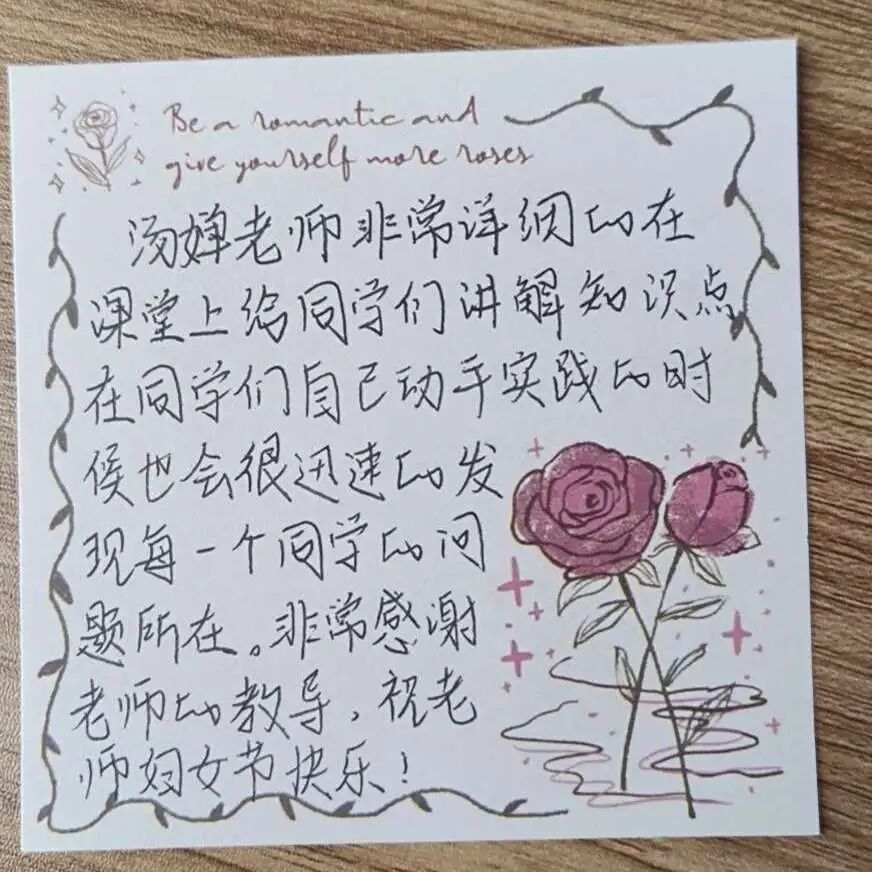 Be a romantic and
give yourself more roses
汤婵老师非常详细的在
课堂上给同学们讲解知识点
在同学们自己动手实践的时
侯也会很迅速的发
现每一个同学的问
题所在。非常感谢
老师的教导，祝老
师妇女节快乐！